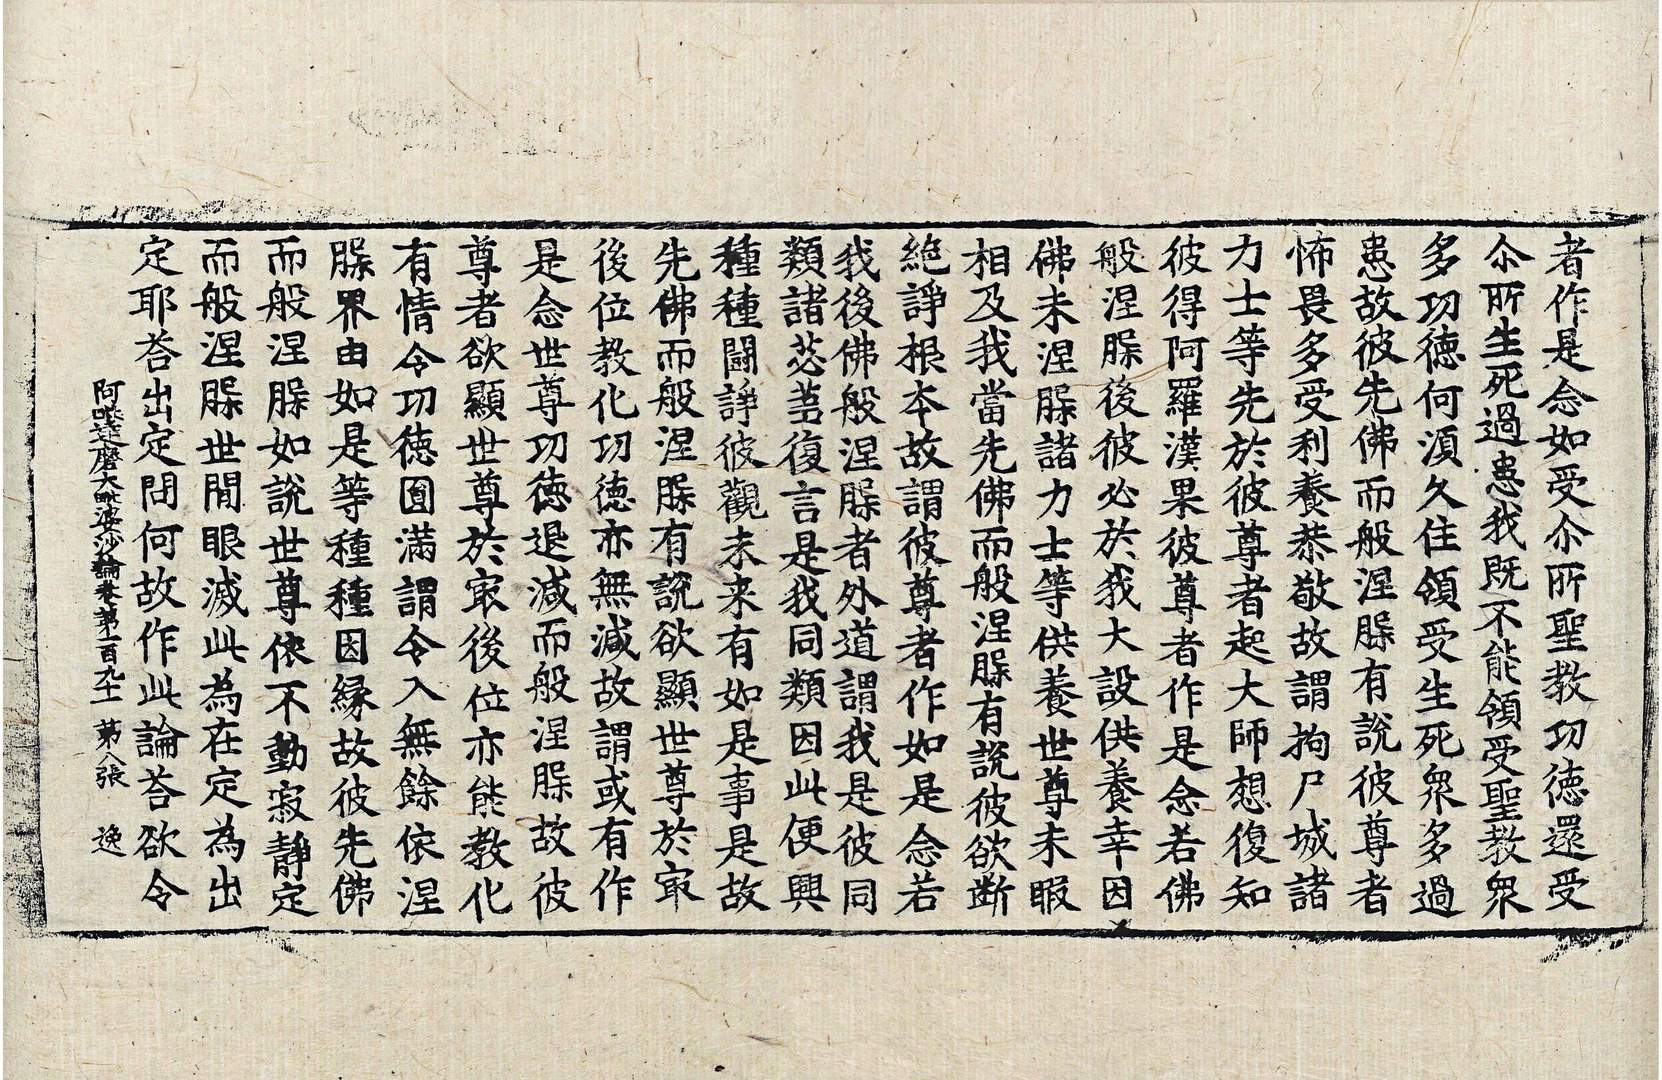 者作是念如受尒所聖教功德還受
尒所生死過患我既不能領受聖教衆
多功德何湏久住領受生死衆多過
患故彼先佛而般涅槃有說彼尊者
怖畏多受利養恭敬故謂拘尸城諸
力士等先於彼尊者起大師想復知
彼得阿羅漢果彼尊者作是念若佛
般涅槃後彼必於我大設供養幸因
佛未涅槃諸力士等供養世尊未暇
相及我當先佛而般涅槃有說彼欲断
絶諍根本故謂彼尊者作如是念若
我後佛般涅槃者外道謂我是彼同
類諸苾芻復言是我同類因此便興
種種闘諍彼觀未来有如是事是故
先佛而般涅槃有說欲顯世尊於㝡
後位教化功德亦無減故謂或有作
是念世尊功德退減而般涅槃故彼
尊者欲顯世尊於㝡後位亦能教化
有情令功德圎滿謂令入無餘依涅
槃界由如是等種種因縁故彼先佛
而般涅槃如說世尊依不動寂静定
而般涅槃世閒眼滅此為在定為出
定耶荅出定問何故作此論荅欲令
阿毗達磨大毗婆沙論卷第一百九十一 第八張 逸